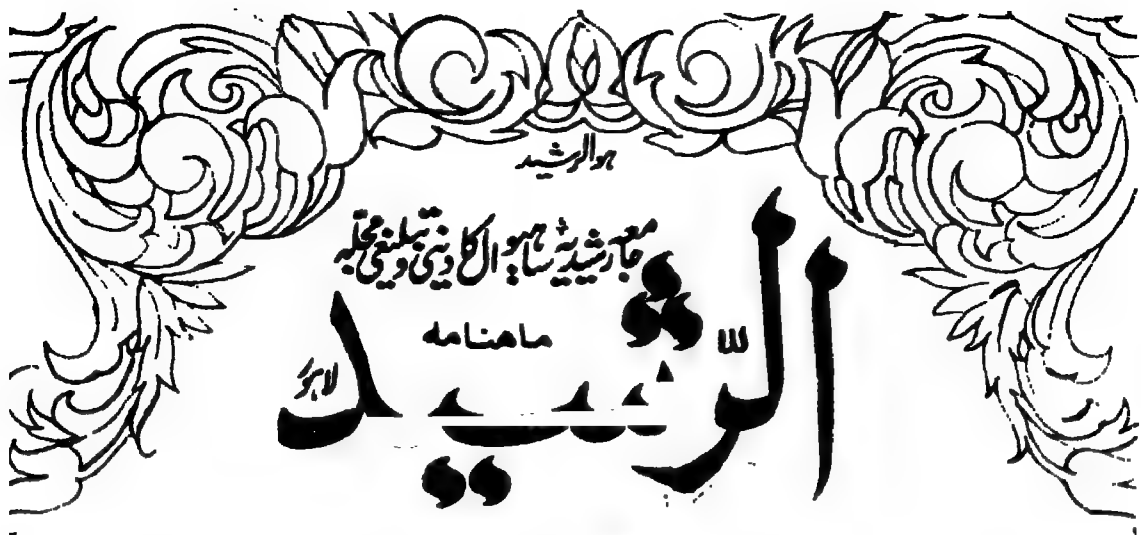 ہوالرشید
جامعہ رشیدیہ ساہیوال کا دینی و تبلیغی مجلہ
ماھنامه
الرّشید
لاہور